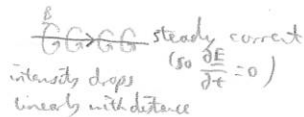 B
steady current
(so ∂E/∂t = 0)
intensity drops
linearly with distance